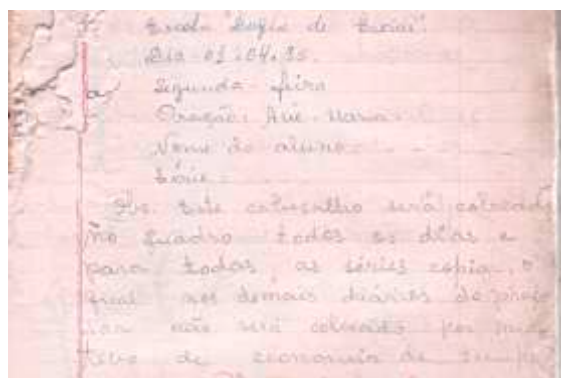 Escola
Dia 01.04.
Segunda - feira
Oração: Ave-Maria
Nome do aluno:
Série:
Este cabeçalho será colocado
no quadro todos os dias e
para todas as séries copiar, o
qual nos demais diários do
não será colocado por mo-
tivo de economia de tempo